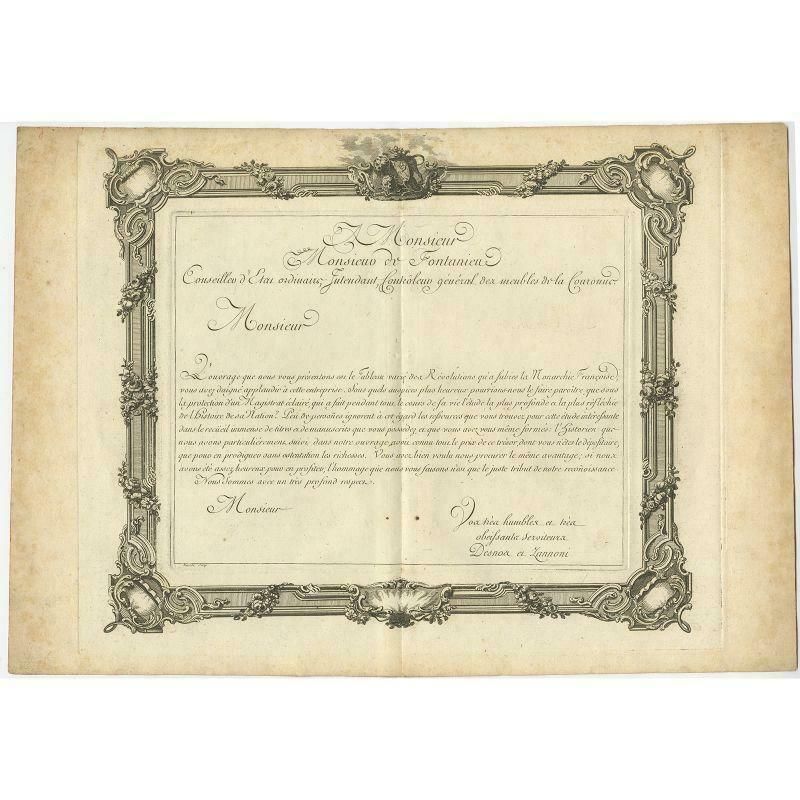 A Monsieur
Monsieur de Fontanieu
Conseiller d'Etat ordinaire, Intendant, Contrôleur général des meubles de la Couronne
Monsieur
L'ouvrage que nous vous présentons est le Tableau varié des Révolutions qu'a subies la Monarchie Françoise
vous avez daigné applaudir à cette entreprise. Sous quels auspices plus heureux pourrions-nous le faire paroître, que sous
la protection d'un Magistrat éclairé, qui a fait pendant tout le cours de sa vie l'étude la plus profonde et la plus réfléchie
de l'histoire de sa Nation? Peu de persoñes ignorent à cet égard les ressources que vous trouvez pour cette étude intéressante
dans le recüeil immense de titres et de manuscrits que vous possédez et que vous avez vous même formés: l'Historien que
nous avons particulièrement suivi dans notre ouvrage, avoit connu tout le prix de ce trésor, dont vous n'êtes le dépositaire,
que pour en prodiguer sans ostentation les richesses. Vous avez bien voulu nous procurer le même avantage; si nous
avons été assez heureux pour en profiter, l'hommage que nous vous faisons n'est que le juste tribut de notre reconoissance
Nous Sommes avec un très profond respect,
Monsieur
Vos très humbles et très
obéissants serviteurs
Desnos et Zannoni